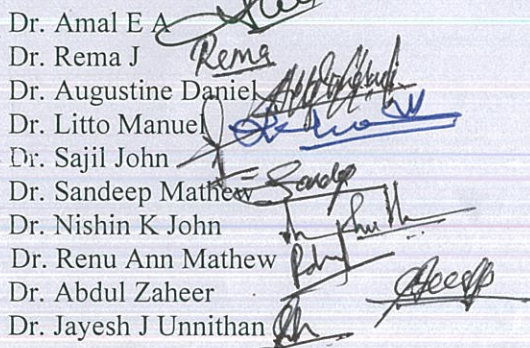 Dr. Amal E A
Dr. Rema J Rema
Dr. Augustine Daniel
Dr. Litto Manuel
Dr. Sajil John
Dr. Sandeep Mathew Sandeep
Dr. Nishin K John
Dr. Renu Ann Mathew
Dr. Abdul Zaheer
Dr. Jayesh J Unnithan